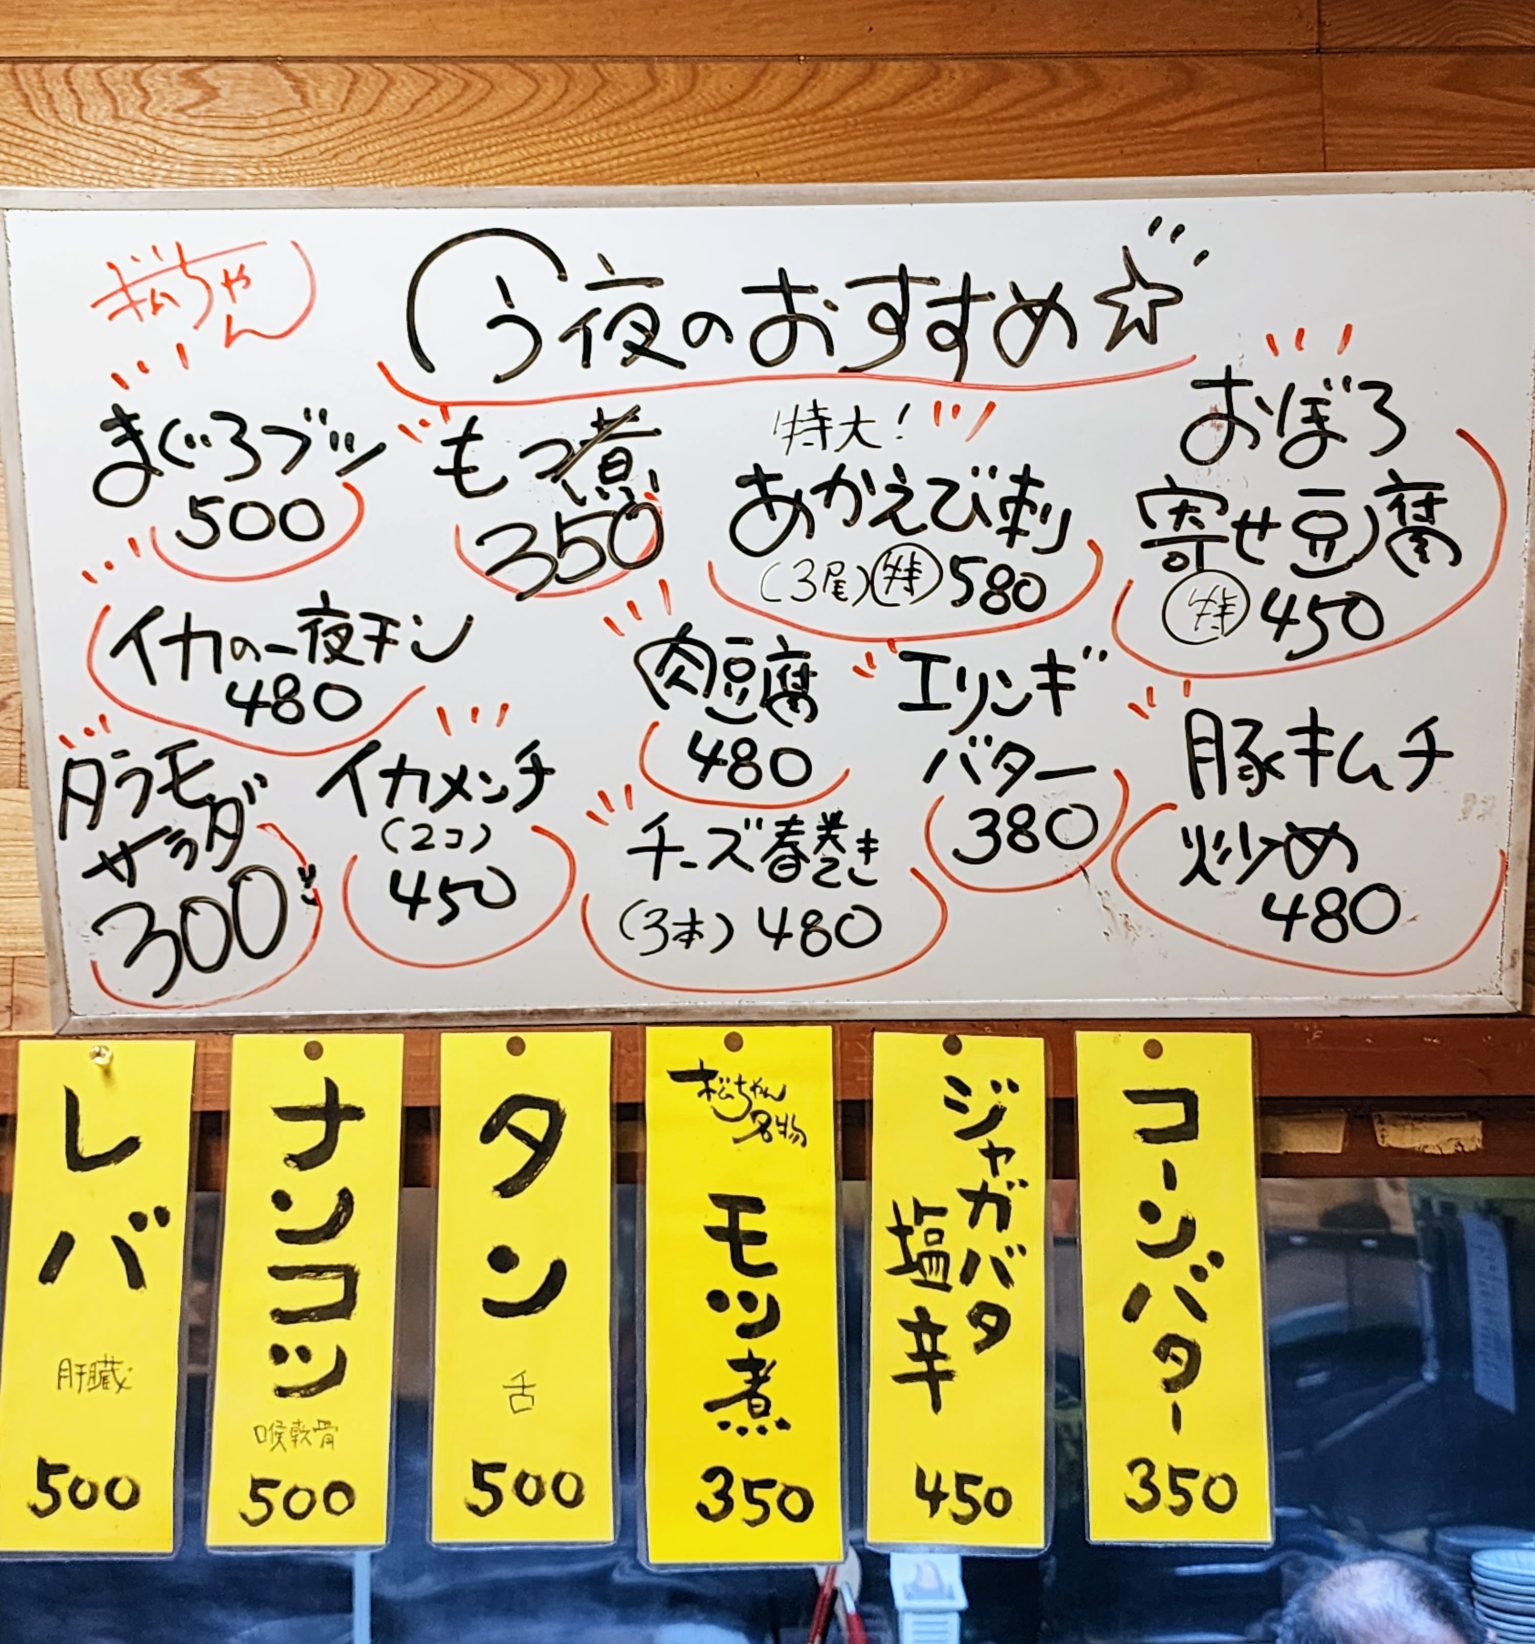 松ちゃん
今夜のおすすめ☆
まぐろブツ
500
もつ煮
350
特大!
あかえび刺
(3尾) 特 580
おぼろ
寄せ豆腐
特 450
イカの一夜干シ
480
肉豆腐
480
エリンギ
バター
380
豚キムチ
炒め
480
タラモ
サラダ
300
イカメンチ
(2コ)
450
チーズ春巻き
(3本) 480
レバ
肝臓
500
ナンコツ
喉軟骨
500
タン
舌
500
松ちゃん
名物
モツ煮
350
ジャガバタ
塩辛
450
コーンバター
350